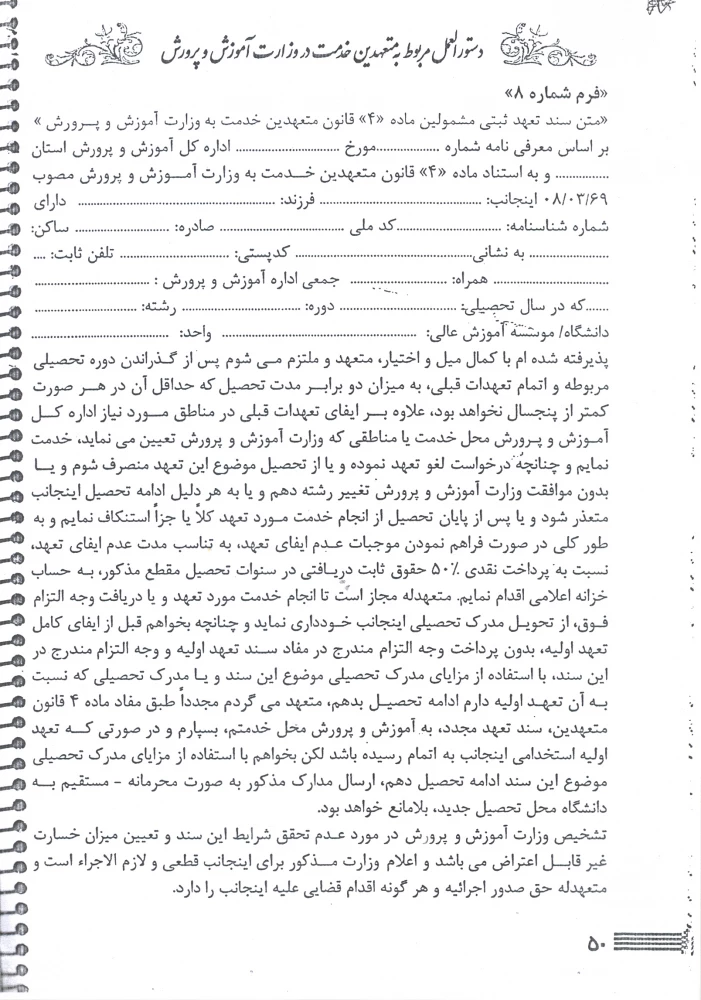 دستورالعمل مربوط به متعهدین خدمت در وزارت آموزش و پرورش
«فرم شماره ۸»
«متن سند تعهد ثبتی مشمولین ماده «۴» قانون متعهدین خدمت به وزارت آموزش و پرورش »
بر اساس معرفی نامه شماره ..................مورخ ........................ اداره کل آموزش و پرورش استان
............... و به استناد ماده «۴» قانون متعهدین خدمت به وزارت آموزش و پرورش مصوب
۰۸/۰۳/۶۹ اینجانب: ..................................... فرزند: ............................................. دارای
شماره شناسنامه: ........................کد ملی ................................... صادره: ...................... ساکن:
.................. به نشانی......................................... کدپستی: ......................... تلفن ثابت: ....
........................... همراه: ...................... جمعی اداره آموزش و پرورش : ..........................
......که در سال تحصیلی: ........................... دوره: ........................... رشته: ........................
دانشگاه/ موسسه آموزش عالی: ............................................. واحد: ................................
پذیرفته شده ام با کمال میل و اختیار، متعهد و ملتزم می شوم پس از گذراندن دوره تحصیلی
مربوطه و اتمام تعهدات قبلی، به میزان دو برابر مدت تحصیل که حداقل آن در هر صورت
کمتر از پنجسال نخواهد بود، علاوه بر ایفای تعهدات قبلی در مناطق مورد نیاز اداره کل
آموزش و پرورش محل خدمت یا مناطقی که وزارت آموزش و پرورش تعیین می نماید، خدمت
نمایم و چنانچه درخواست لغو تعهد نموده و یا از تحصیل موضوع این تعهد منصرف شوم و یا
بدون موافقت وزارت آموزش و پرورش تغییر رشته دهم و یا به هر دلیل ادامه تحصیل اینجانب
متعذر شود و یا پس از پایان تحصیل از انجام خدمت مورد تعهد کلاً یا جزاً استنکاف نمایم و به
طور کلی در صورت فراهم نمودن موجبات عدم ایفای تعهد، به تناسب مدت عدم ایفای تعهد،
نسبت به پرداخت نقدی ۵۰٪ حقوق ثابت دریافتی در سنوات تحصیل مقطع مذکور، به حساب
خزانه اعلامی اقدام نمایم. متعهدله مجاز است تا انجام خدمت مورد تعهد و یا دریافت وجه التزام
فوق، از تحویل مدرک تحصیلی اینجانب خودداری نماید و چنانچه بخواهم قبل از ایفای کامل
تعهد اولیه، بدون پرداخت وجه التزام مندرج در مفاد سند تعهد اولیه و وجه التزام مندرج در
این سند، با استفاده از مزایای مدرک تحصیلی موضوع این سند و یا مدرک تحصیلی که نسبت
به آن تعهد اولیه دارم ادامه تحصیل بدهم، متعهد می گردم مجدداً طبق مفاد ماده ۴ قانون
متعهدین، سند تعهد مجدد، به آموزش و پرورش محل خدمتم، بسپارم و در صورتی که تعهد
اولیه استخدامی اینجانب به اتمام رسیده باشد لکن بخواهم با استفاده از مزایای مدرک تحصیلی
موضوع این سند ادامه تحصیل دهم، ارسال مدارک مذکور به صورت محرمانه - مستقیم به
دانشگاه محل تحصیل جدید، بلامانع خواهد بود.
تشخیص وزارت آموزش و پرورش در مورد عدم تحقق شرایط این سند و تعیین میزان خسارت
غیر قابل اعتراض می باشد و اعلام وزارت مذکور برای اینجانب قطعی و لازم الاجراء است و
متعهدله حق صدور اجرائیه و هر گونه اقدام قضایی علیه اینجانب را دارد.
۵۰